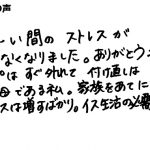 の声
しい間の ストレスが
なくなりました。ありがとう
はすぐ外れて 付け直しは
母である私。家族をあてに
スは増すばかり。イス生活の必需